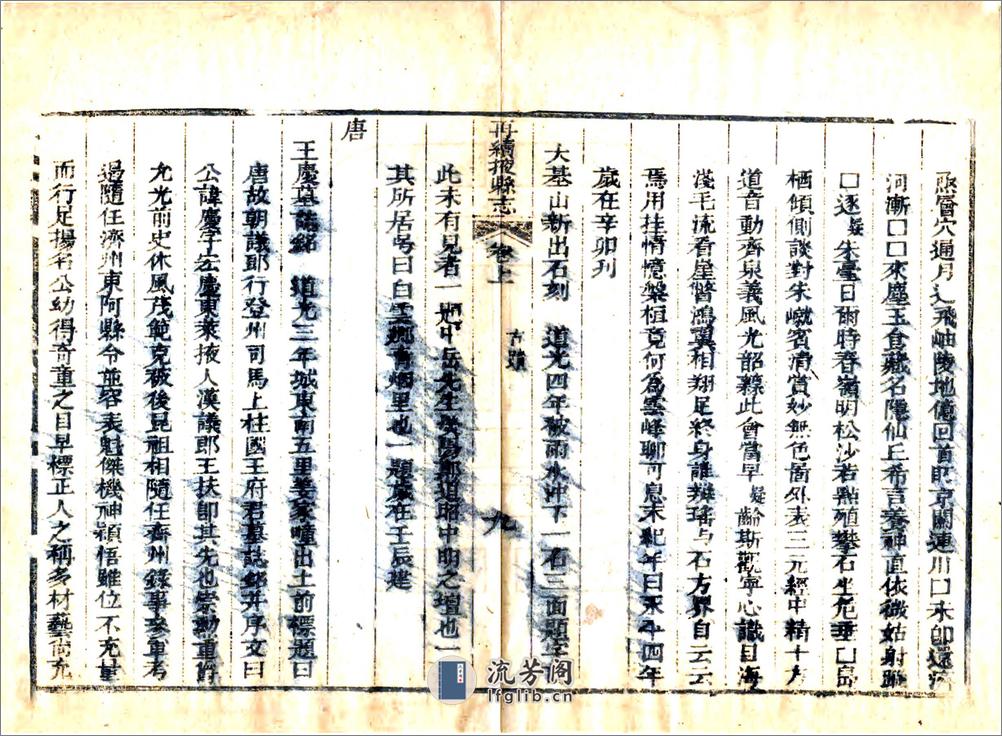 層穴通月飛岫陵地億回首京關連川口
河漸口口來塵玉食藏名隱仙丘希言養神直依微姑射
口逐疑朱臺日爾時春嶺明松沙若點殖攀石坐危垂口
栖傾側談對朱賓清賞妙無色圖外表三元經中精十方
道音動齊泉義風光韶此會當早疑齡斯觀寧心識目海
淺毛流看崖瞥鴻翼相翔足終身誰辯瑤与石方界自云云
焉用挂情憶槃桓竟何為雲峰聊可息末紀年曰永平四年
歲在辛卯刊
大基山新出石刻 道光四年被雨水沖下一石三面題字
再續掖縣志 卷上 古蹟 九
此未有見者一中岳先生滎陽鄭道昭中明之壇也一
其所居号曰白雲鄉青烟里也一題歲在壬辰建
唐
王慶墓誌銘 道光三年城東南五里姜家疃出土前標題曰
唐故朝議郎行登州司馬上柱國王府君墓誌銘并序文曰
公諱慶字慶東萊掖人漢議郎王扶即其先也崇勳重
允光前史休風茂範克被後昆祖相隨任齊州錄事參軍考
過隨任濟州東阿縣令並容表魁傑機神穎悟雖位不充量
而行足揚名公幼得奇童之目早標正人之稱多材藝尚充
流芳阁
lfglib.cn